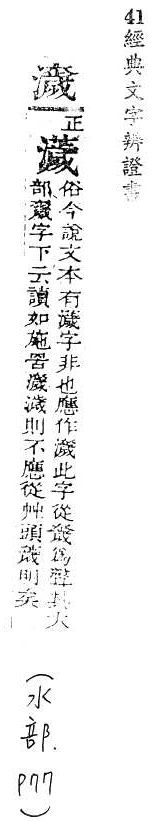 41 經典文字辨證書
濊 正
俗今說文本有字非也應作濊此字從歲爲聲其大
部奯字下云讀如施罟濊濊則不應從艸頭歲明矣
（水部. P77）